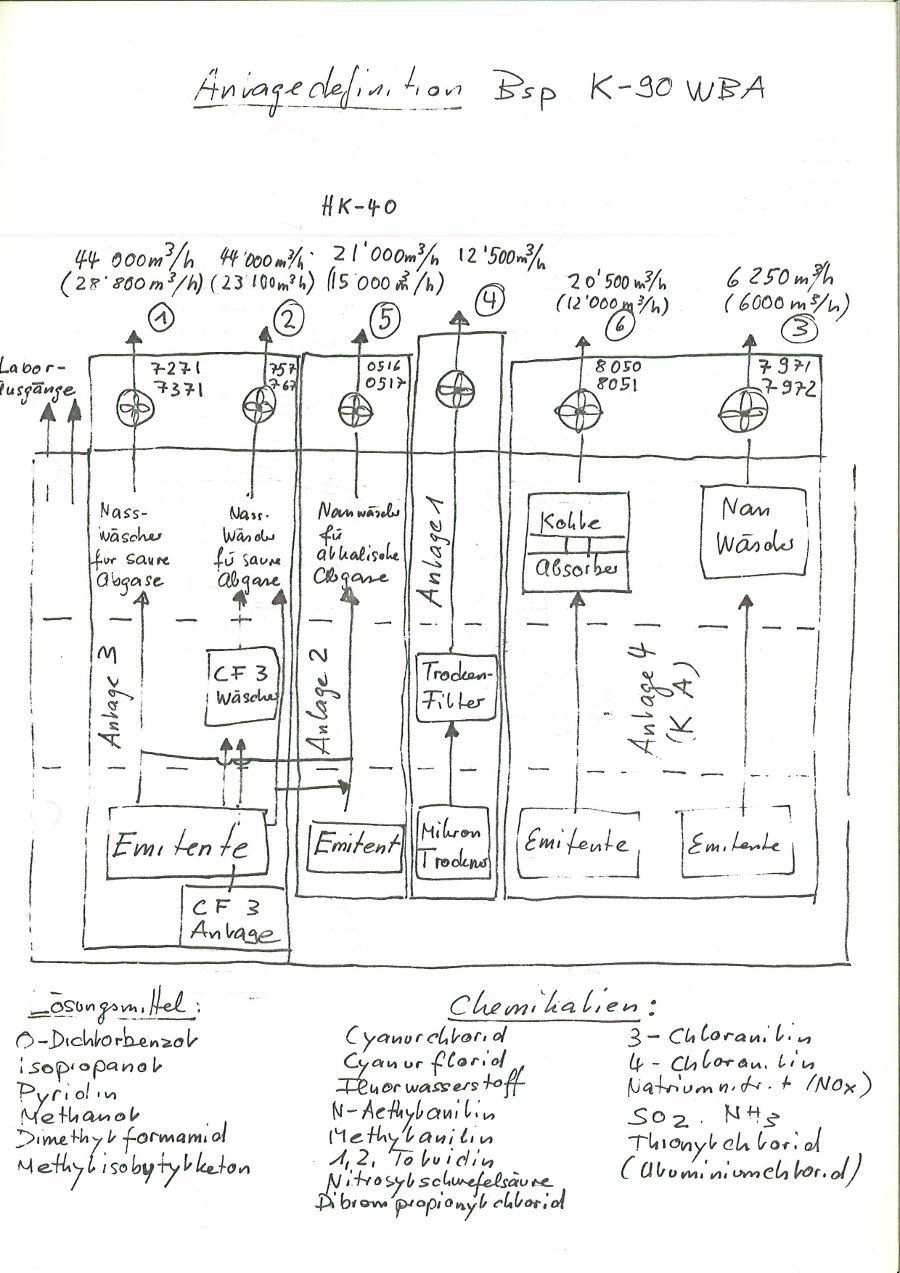 Anlagedefinition Bsp K-90 WBA
HK-40
44 000 m³/h
(28'800 m³/h)
44'000 m³/h
(23'100 m³/h)
21'000 m³/h
(15 000 m³/h)
12'500 m³/h
20'500 m³/h
(12'000 m³/h)
6 250 m³/h
(6000 m³/h)
1
2
5
4
6
3
Labor-
ausgänge
7271
7371
757
767
0516
0517
8050
8051
7971
7972
Nass-
wäscher
für saure
Abgase
Nass-
Wäscher
fü saure
Abgase
Nasswäscher
fü
alkalische
Abgase
Anlage 1
Kohle
Absorber
Nass
Wäscher
Anlage 3
CF3
Wäscher
Anlage 2
Trocken-
Filter
Anlage 4
(K A)
Emitente
Emitent
Mikron
Trockner
Emitente
Emitente
CF 3
Anlage
Lösungsmittel:
O-Dichlorbenzol
isopropanol
Pyridin
Methanol
Dimethylformamid
Methylisobutylketon
Chemikalien:
Cyanurchlorid
Cyanurflorid
Fluorwasserstoff
N-Aethylanilin
Methylanilin
1,2, Toluidin
Nitrosylschwefelsäure
Dibrompropionylchlorid
3-Chloranilin
4-Chloranilin
Natriumnitrit (NOx)
SO2. NH3
Thionylchlorid
(Aluminiumchlorid)